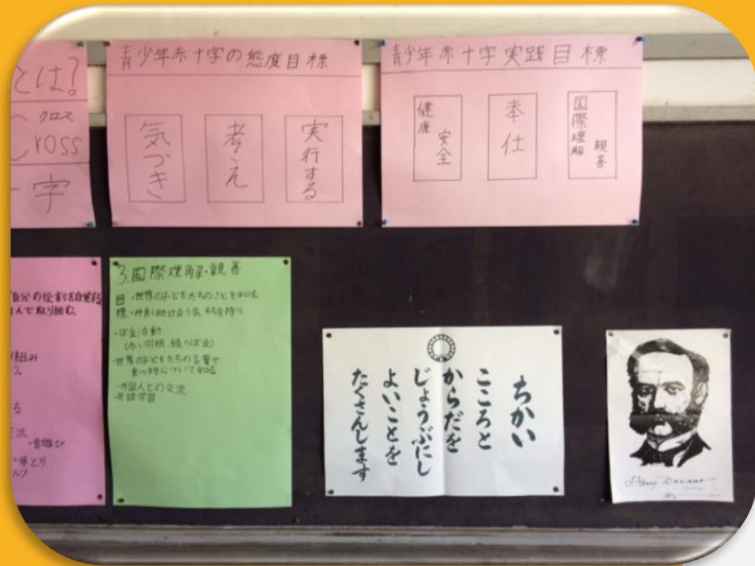 とは?
クロス
Cross
十字
青少年赤十字の態度目標
気づき
考え
実行する
青少年赤十字実践目標
健康
安全
奉仕
国際理解
親善
自分の役割を自覚
んで取り組む。
り組み
る
交流
・昔遊び
3.国際理解・親善
目・世界の子どもたちのことを知る
標・仲良く助け合う気もちを持つ
・ぼ金活動
(赤い羽根、緑のぼ金)
・世界の子どもたちの言葉や
食べ物について知る
・外国人との交流
・英語学習
ちかい
こころと
からだを
じょうぶにし
よいことを
たくさんします
J. Henry Dunant